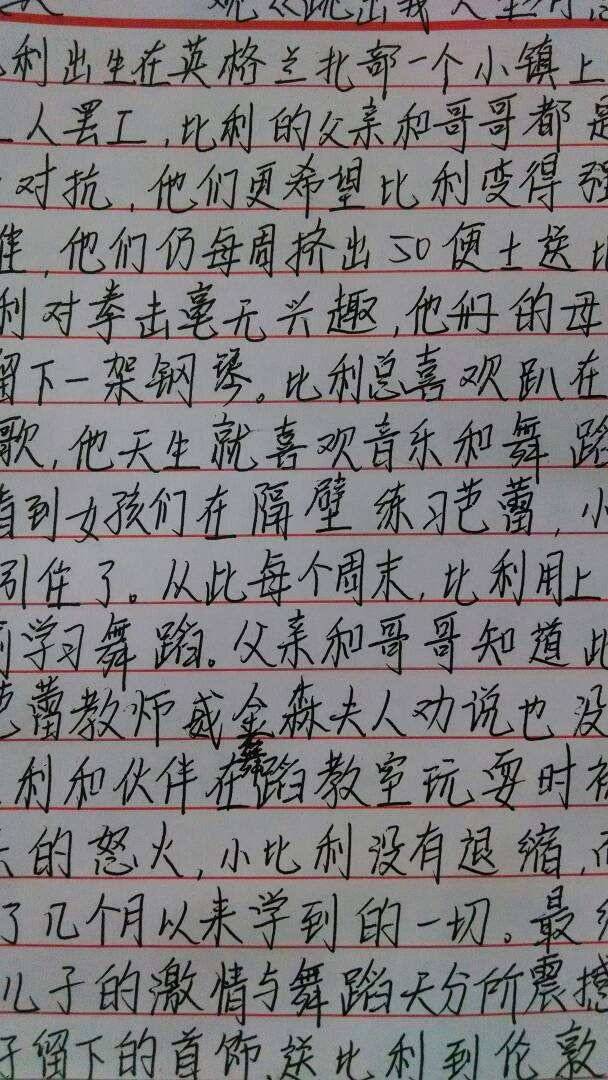 观《跳出我人生
利出生在英格兰北部一个小镇上
人罢工,比利的父亲和哥哥都是
对抗,他们更希望比利变得强
他们仍每周挤出50便士送比
利对拳击毫无兴趣,他们的母
留下一架钢琴。比利总喜欢趴在
歌,他天生就喜欢音乐和舞蹈
看到女孩们在隔壁练习芭蕾,小
引住了。从此每个周末,比利用上
学习舞蹈。父亲和哥哥知道此
芭蕾教师威金森夫人劝说也没
利和伙伴在舞蹈教室玩耍时被
的怒火,小比利没有退缩,而
了几个月以来学到的一切。最终
儿子的激情与舞蹈天分所震撼
留下的首饰,送比利到伦敦